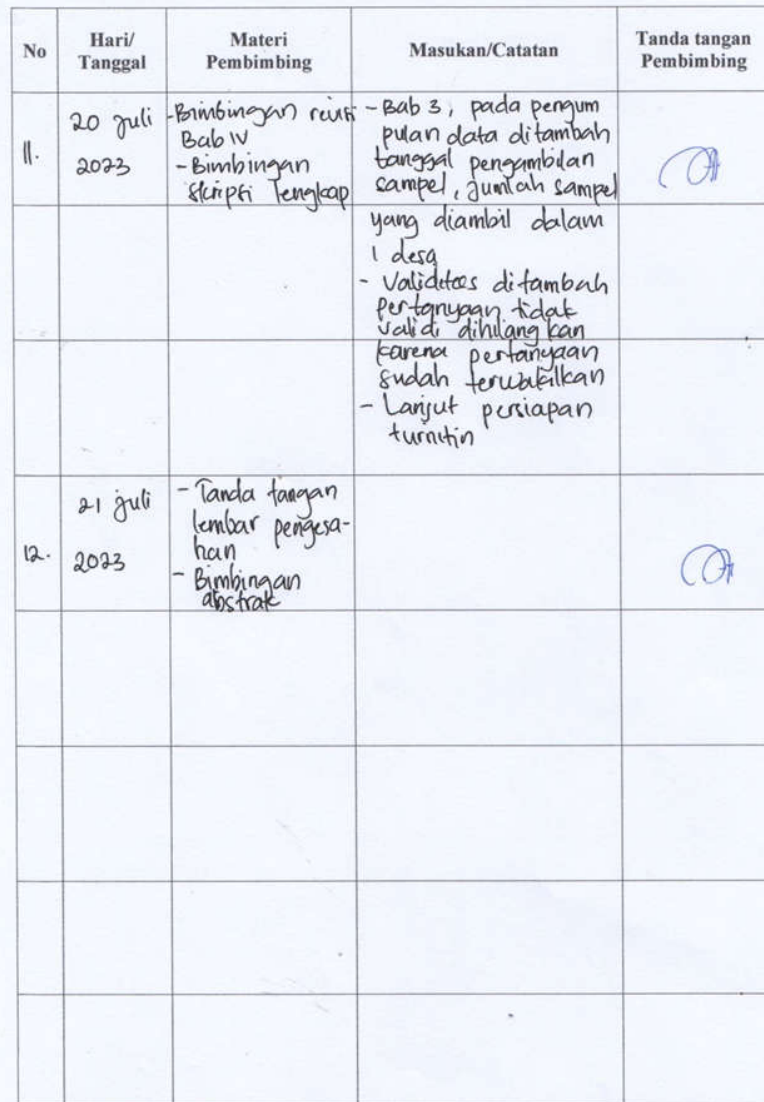 No
Hari/
Tanggal
Materi
Pembimbing
Masukan/Catatan
Tanda tangan
Pembimbing
11.
20 Juli
2023
-Bimbingan revisi
Bab IV
- Bimbingan
Skripsi lengkap
- Bab 3, pada pengum
pulan data ditambah
tanggal pengambilan
sampel, jumlah sampel
yang diambil dalam
1 desa
- Validitas ditambah
pertanyaan tidak
valid dihilangkan
karena pertanyaan
sudah terwakilkan
- Lanjut persiapan
turnitin
12.
21 Juli
2023
- Tanda tangan
lembar pengesa-
han
- Bimbingan
abstrak